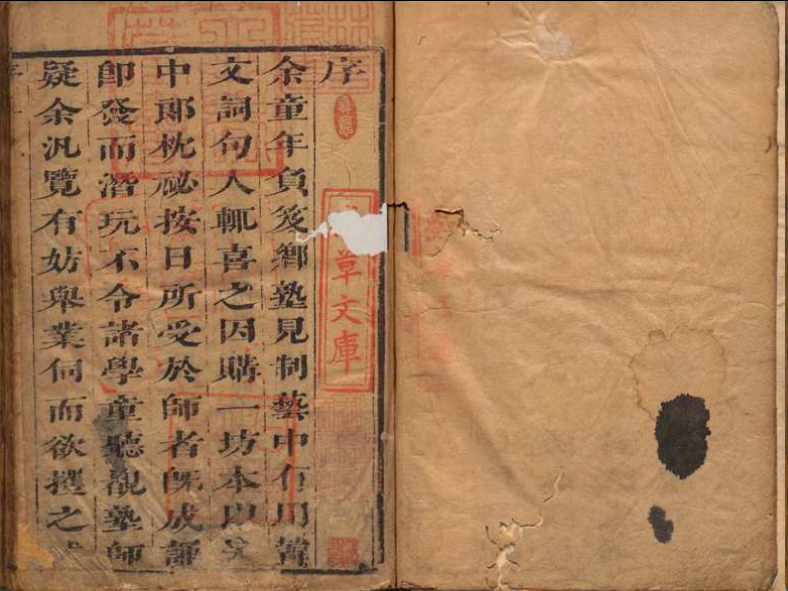 序
余童年負笈鄉塾見制藝中有用韓
文詞句人輒喜之因購一坊本以
中郎枕祕按日所受於師者既成誦
卽發而潛玩不令諸學童聽覩塾師
疑余汎覽有妨舉業伺而欲撲之
草文庫